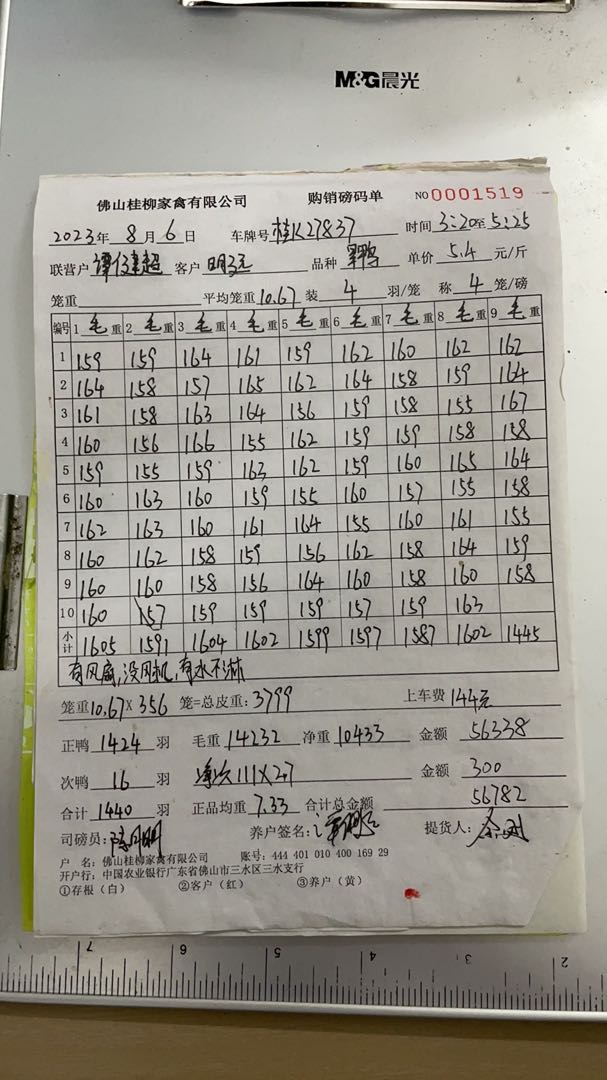 M&G晨光
佛山桂柳家禽有限公司 购销磅码单 NO 0001519
2023年 8月 6日 车牌号 桂K27837 时间 3:20至5:25
联营户 谭健超 客户 品种 单价 5.4 元/斤
笼重 平均笼重 10.67 装 4 羽/笼 称 4 笼/磅
编号 1 毛重 2 毛重 3 毛重 4 毛重 5 毛重 6 毛重 7 毛重 8 毛重 9 毛重
1 159 159 164 161 159 162 160 162 162
2 164 158 157 165 162 164 158 159 164
3 161 158 163 164 156 159 158 155 167
4 160 156 166 155 162 159 159 158 158
5 159 155 159 163 162 159 160 165 164
6 160 163 160 159 155 160 157 155 158
7 162 163 160 161 164 155 160 161 155
8 160 162 158 159 156 162 158 164 159
9 160 160 158 156 164 160 158 160 158
10 160 157 159 159 159 157 159 163
小计 1605 1591 1604 1602 1599 1597 1587 1602 1445
有风扇,没风机,有水不淋
笼重 10.67 × 356 笼=总皮重: 3799 上车费 144元
正鸭 1424 羽 毛重 14232 净重 10433 金额 56338
次鸭 16 羽 净次111×2.7 金额 300
合计 1440 羽 正品均重 7.33 合计总金额 56782
司磅员: 养户签名: 提货人:
户 名: 佛山桂柳家禽有限公司 账号: 444 401 010 400 169 29
开户行: 中国农业银行广东省佛山市三水区三水支行
①存根(白) ②客户(红) ③养户(黄)
7 6 5 4 3 2